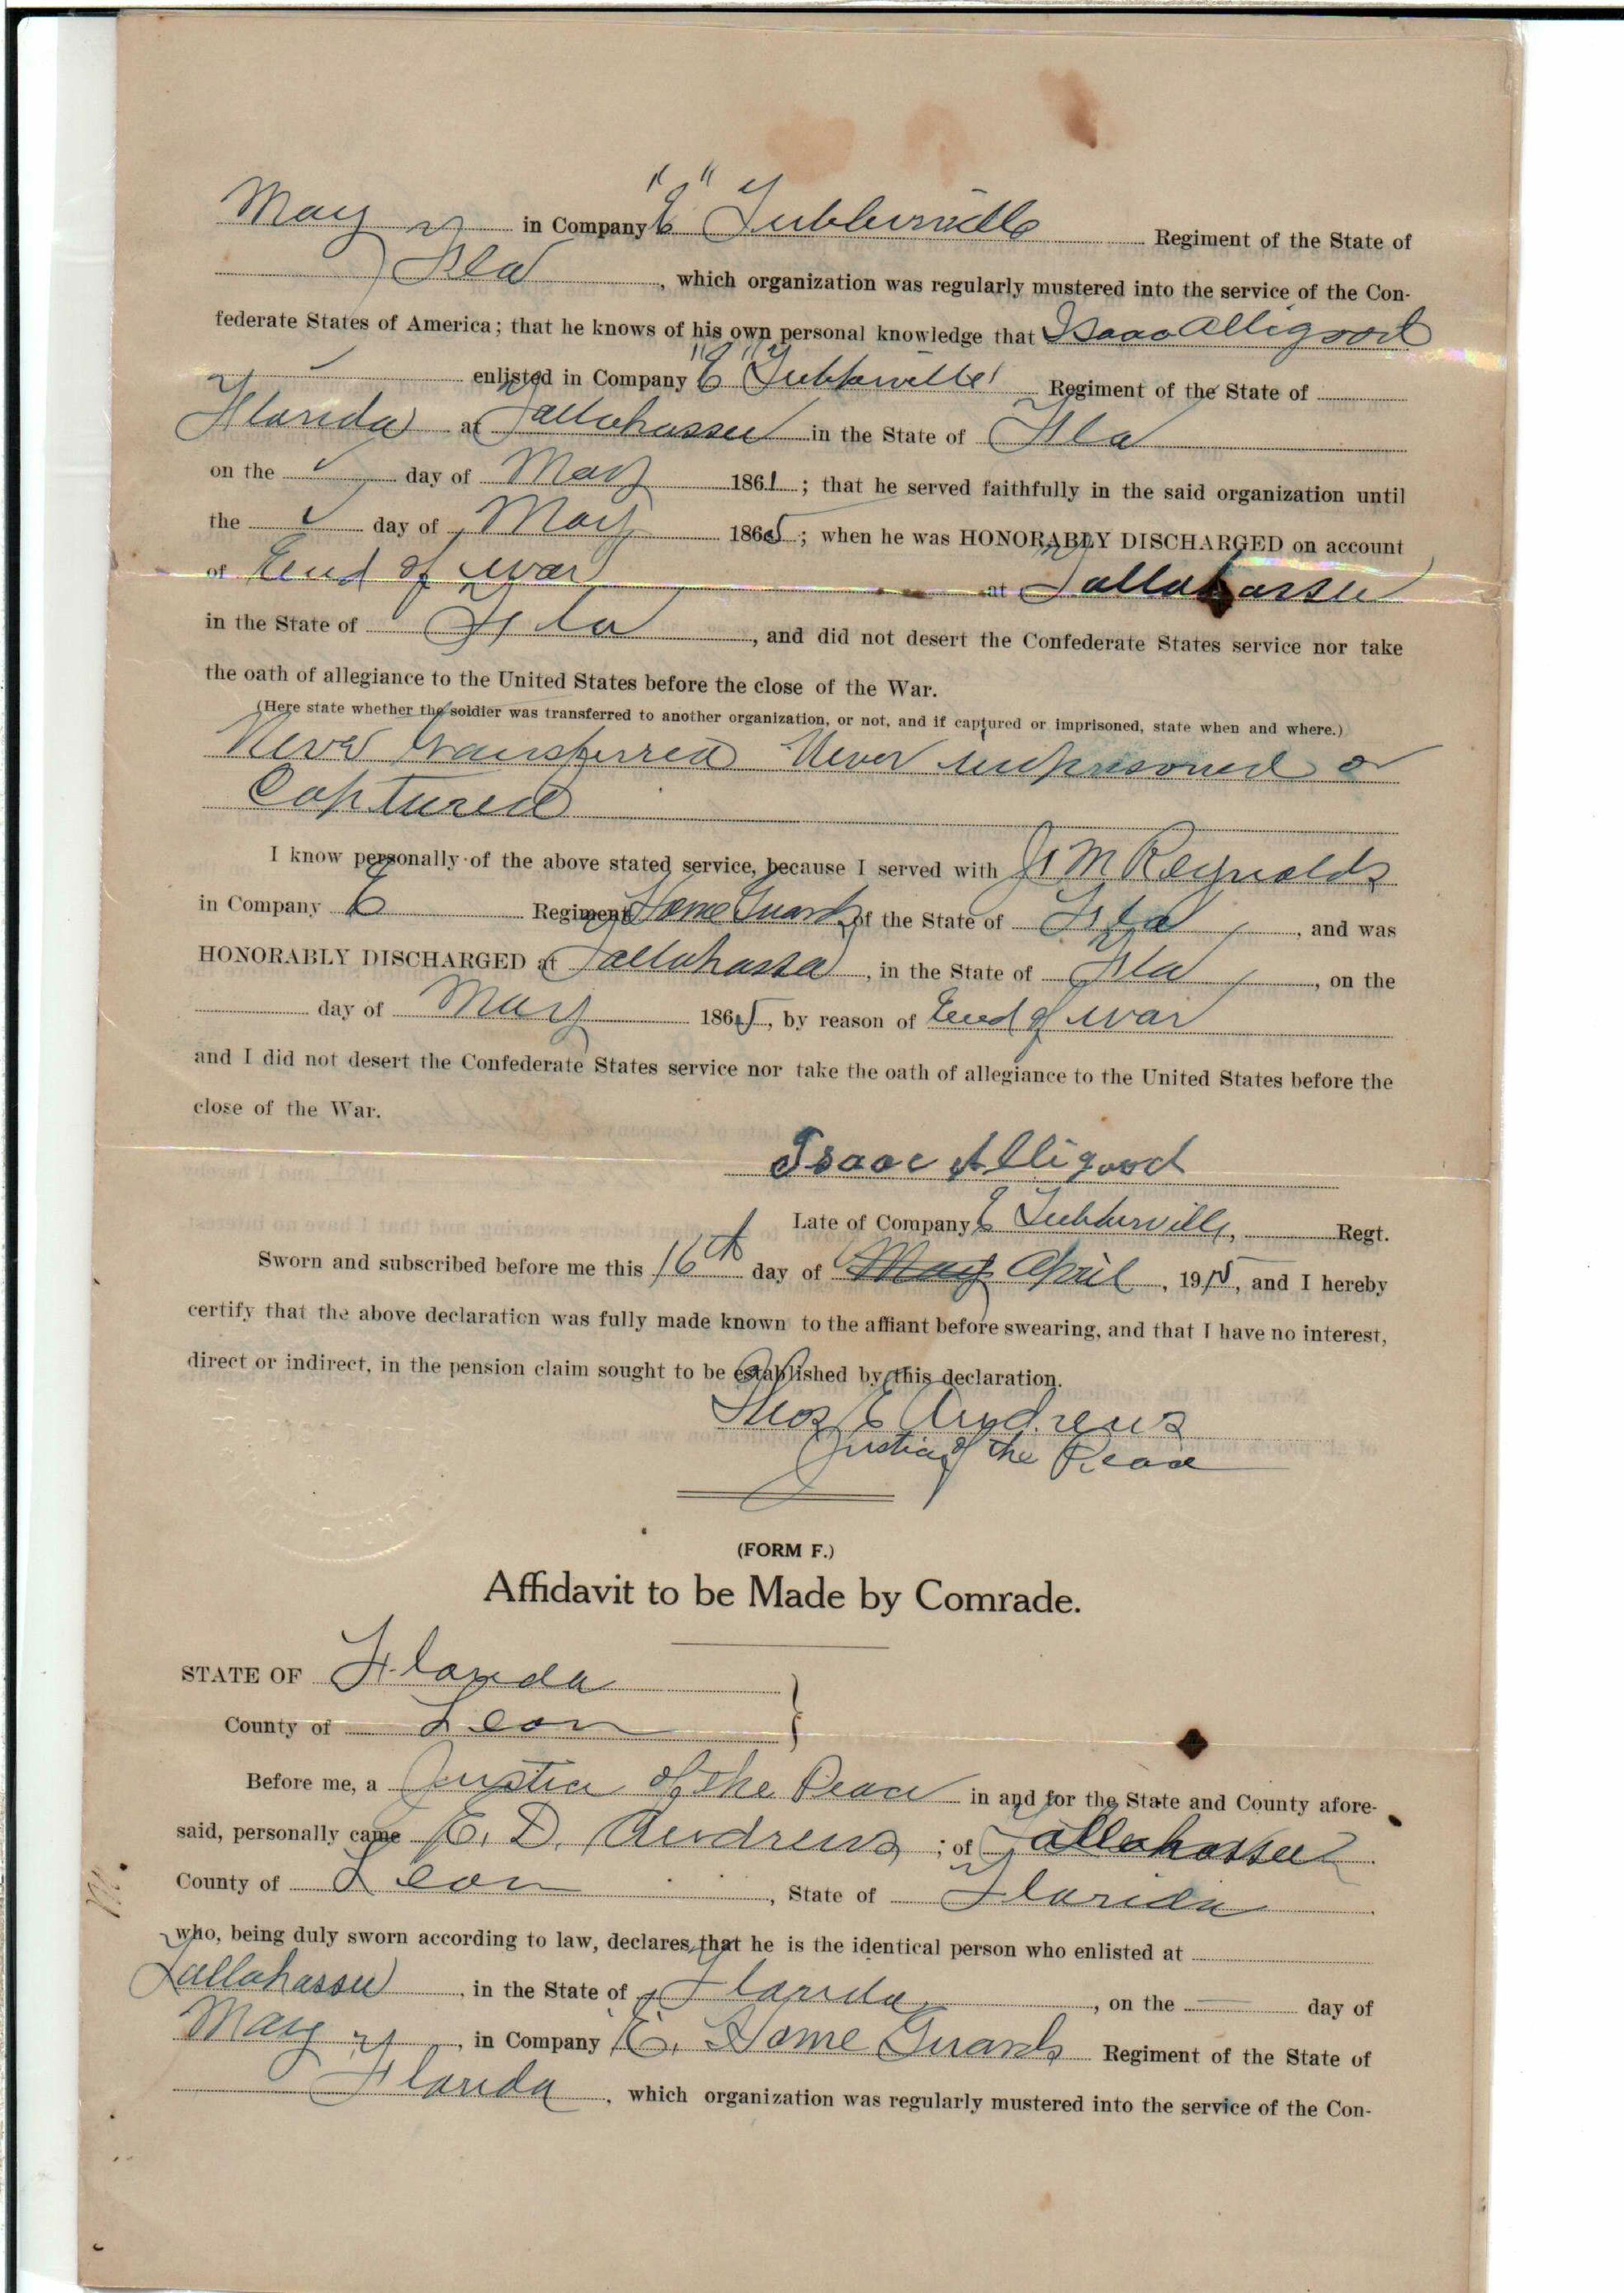 May in Company "E" Tubberville Regiment of the State of
Fla , which organization was regularly mustered into the service of the Con-
federate States of America; that he knows of his own personal knowledge that Isaac Alligood
enlisted in Company "E" Tubberville Regiment of the State of
Florida at Tallahassee in the State of Fla
on the day of May 1861 ; that he served faithfully in the said organization until
the day of May 1865 ; when he was HONORABLY DISCHARGED on account
of End of war at Tallahassee
in the State of Fla , and did not desert the Confederate States service nor take
the oath of allegiance to the United States before the close of the War.
(Here state whether the soldier was transferred to another organization, or not, and if captured or imprisoned, state when and where.)
Never transferred Never imprisoned or
Captured
I know personally of the above stated service, because I served with M Reynolds
in Company E Regiment Home Guards of the State of Fla , and was
HONORABLY DISCHARGED at Tallahassa , in the State of Fla , on the
day of May 1865 , by reason of End of war
and I did not desert the Confederate States service nor take the oath of allegiance to the United States before the
close of the War.
Isaac Alligood
Late of Company E Tubberville, Regt.
Sworn and subscribed before me this 16th day of May April , 1915 , and I hereby
certify that the above declaration was fully made known to the affiant before swearing, and that I have no interest,
direct or indirect, in the pension claim sought to be established by this declaration.
Thos E Andrews
Justice of the Peace
(FORM F.)
Affidavit to be Made by Comrade.
STATE OF Florida
County of Leon
Before me, a Justice of the Peace in and for the State and County afore-
said, personally came E. D. Andrews ; of Tallahassee
County of Leon , State of Florida
who, being duly sworn according to law, declares that he is the identical person who enlisted at
Tallahassee , in the State of Florida , on the — day of
May , in Company E. Home Guards Regiment of the State of
Florida , which organization was regularly mustered into the service of the Con-